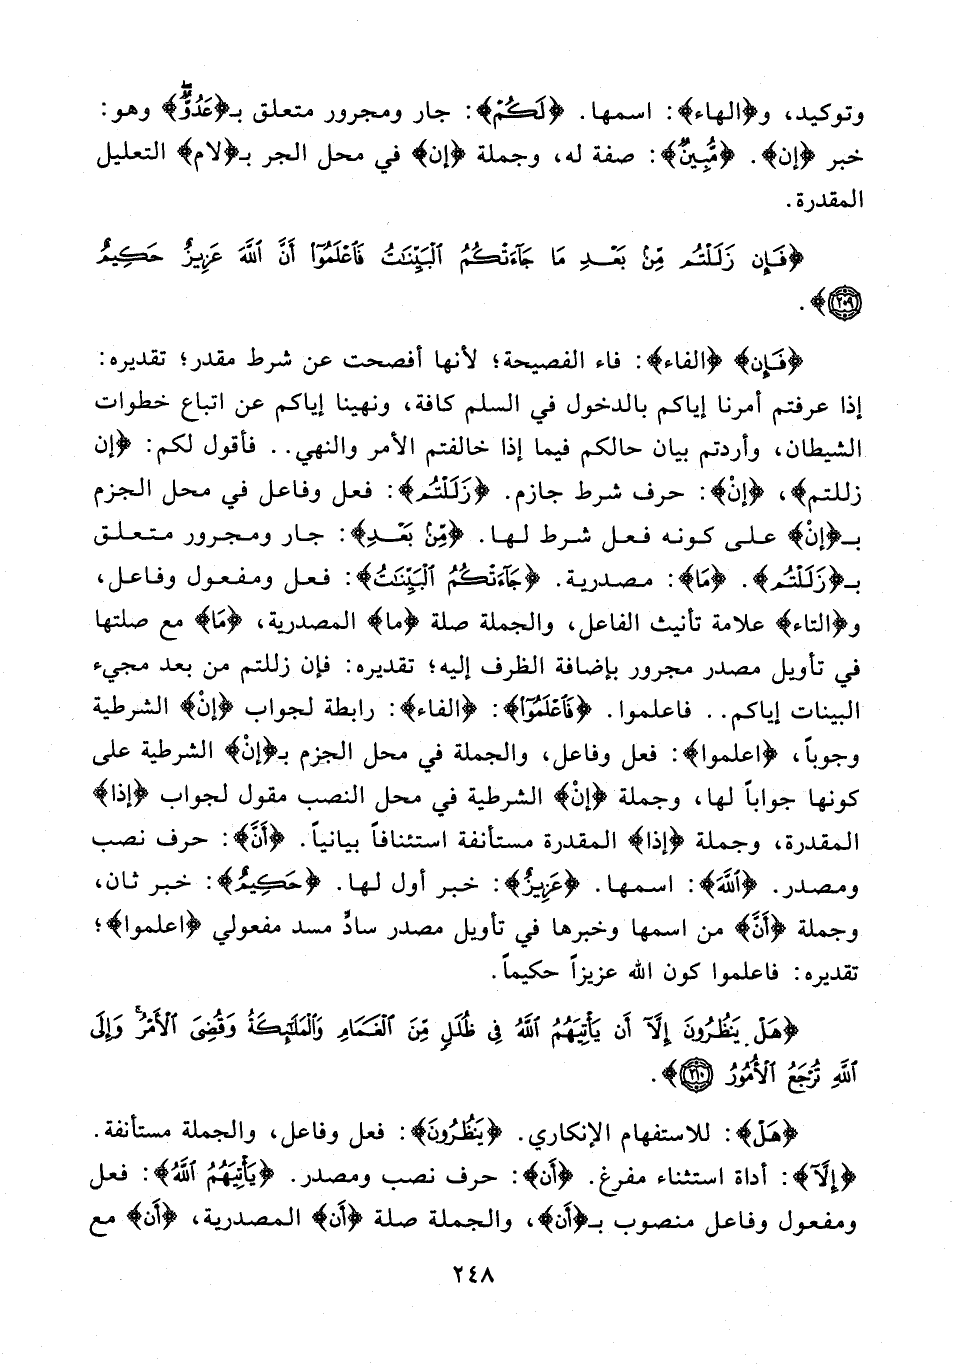 وتوكيد، و﴿الهاء﴾: اسمها. ﴿لَكُمْ﴾: جار ومجرور متعلق بـ﴿عَدُوٌّ﴾ وهو:
خبر ﴿إن﴾. ﴿مُّبِينٌ﴾: صفة له، وجملة ﴿إن﴾ في محل الجر بـ﴿لام﴾ التعليل
المقدرة.
﴿فَإِن زَلَلْتُم مِّنۢ بَعْدِ مَا جَآءَتْكُمُ ٱلْبَيِّنَـٰتُ فَٱعْلَمُوٓا۟ أَنَّ ٱللَّهَ عَزِيزٌ حَكِيمٌ
٢٠٩﴾.
﴿فَإِن﴾ ﴿الفاء﴾: فاء الفصيحة؛ لأنها أفصحت عن شرط مقدر؛ تقديره:
إذا عرفتم أمرنا إياكم بالدخول في السلم كافة، ونهينا إياكم عن اتباع خطوات
الشيطان، وأردتم بيان حالكم فيما إذا خالفتم الأمر والنهي.. فأقول لكم: ﴿إن
زللتم﴾، ﴿إنْ﴾: حرف شرط جازم. ﴿زَلَلْتُم﴾: فعل وفاعل في محل الجزم
بـ﴿إنْ﴾ على كونه فعل شرط لها. ﴿مِّنۢ بَعْدِ﴾: جار ومجرور متعلق
بـ﴿زَلَلْتُم﴾. ﴿مَا﴾: مصدرية. ﴿جَآءَتْكُمُ ٱلْبَيِّنَـٰتُ﴾: فعل ومفعول وفاعل،
و﴿التاء﴾ علامة تأنيث الفاعل، والجملة صلة ﴿ما﴾ المصدرية، ﴿مَا﴾ مع صلتها
في تأويل مصدر مجرور بإضافة الظرف إليه؛ تقديره: فإن زللتم من بعد مجيء
البينات إياكم.. فاعلموا. ﴿فَٱعْلَمُوٓا۟﴾: ﴿الفاء﴾: رابطة لجواب ﴿إنْ﴾ الشرطية
وجوباً، ﴿اعلموا﴾: فعل وفاعل، والجملة في محل الجزم بـ﴿إنْ﴾ الشرطية على
كونها جواباً لها، وجملة ﴿إنْ﴾ الشرطية في محل النصب مقول لجواب ﴿إذا﴾
المقدرة، وجملة ﴿إذا﴾ المقدرة مستأنفة استئنافاً بيانياً. ﴿أَنَّ﴾: حرف نصب
ومصدر. ﴿ٱللَّهَ﴾: اسمها. ﴿عَزِيزٌ﴾: خبر أول لها. ﴿حَكِيمٌ﴾: خبر ثان،
وجملة ﴿أَنَّ﴾ من اسمها وخبرها في تأويل مصدر سادٍّ مسد مفعولي ﴿اعلموا﴾؛
تقديره: فاعلموا كون الله عزيزاً حكيماً.
﴿هَلْ يَنظُرُونَ إِلَّآ أَن يَأْتِيَهُمُ ٱللَّهُ فِى ظُلَلٍ مِّنَ ٱلْغَمَامِ وَٱلْمَلَـٰٓئِكَةُ وَقُضِىَ ٱلْأَمْرُ ۚ وَإِلَى
ٱللَّهِ تُرْجَعُ ٱلْأُمُورُ ٢١٠﴾.
﴿هَلْ﴾: للاستفهام الإنكاري. ﴿يَنظُرُونَ﴾: فعل وفاعل، والجملة مستأنفة.
﴿إِلَّآ﴾: أداة استثناء مفرغ. ﴿أَن﴾: حرف نصب ومصدر. ﴿يَأْتِيَهُمُ ٱللَّهُ﴾: فعل
ومفعول وفاعل منصوب بـ﴿أَن﴾، والجملة صلة ﴿أَن﴾ المصدرية، ﴿أَن﴾ مع
٢٤٨